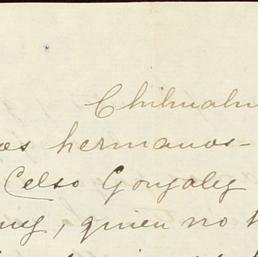 Chihuahu
os hermanos-
Celso Gonzalez
quien no